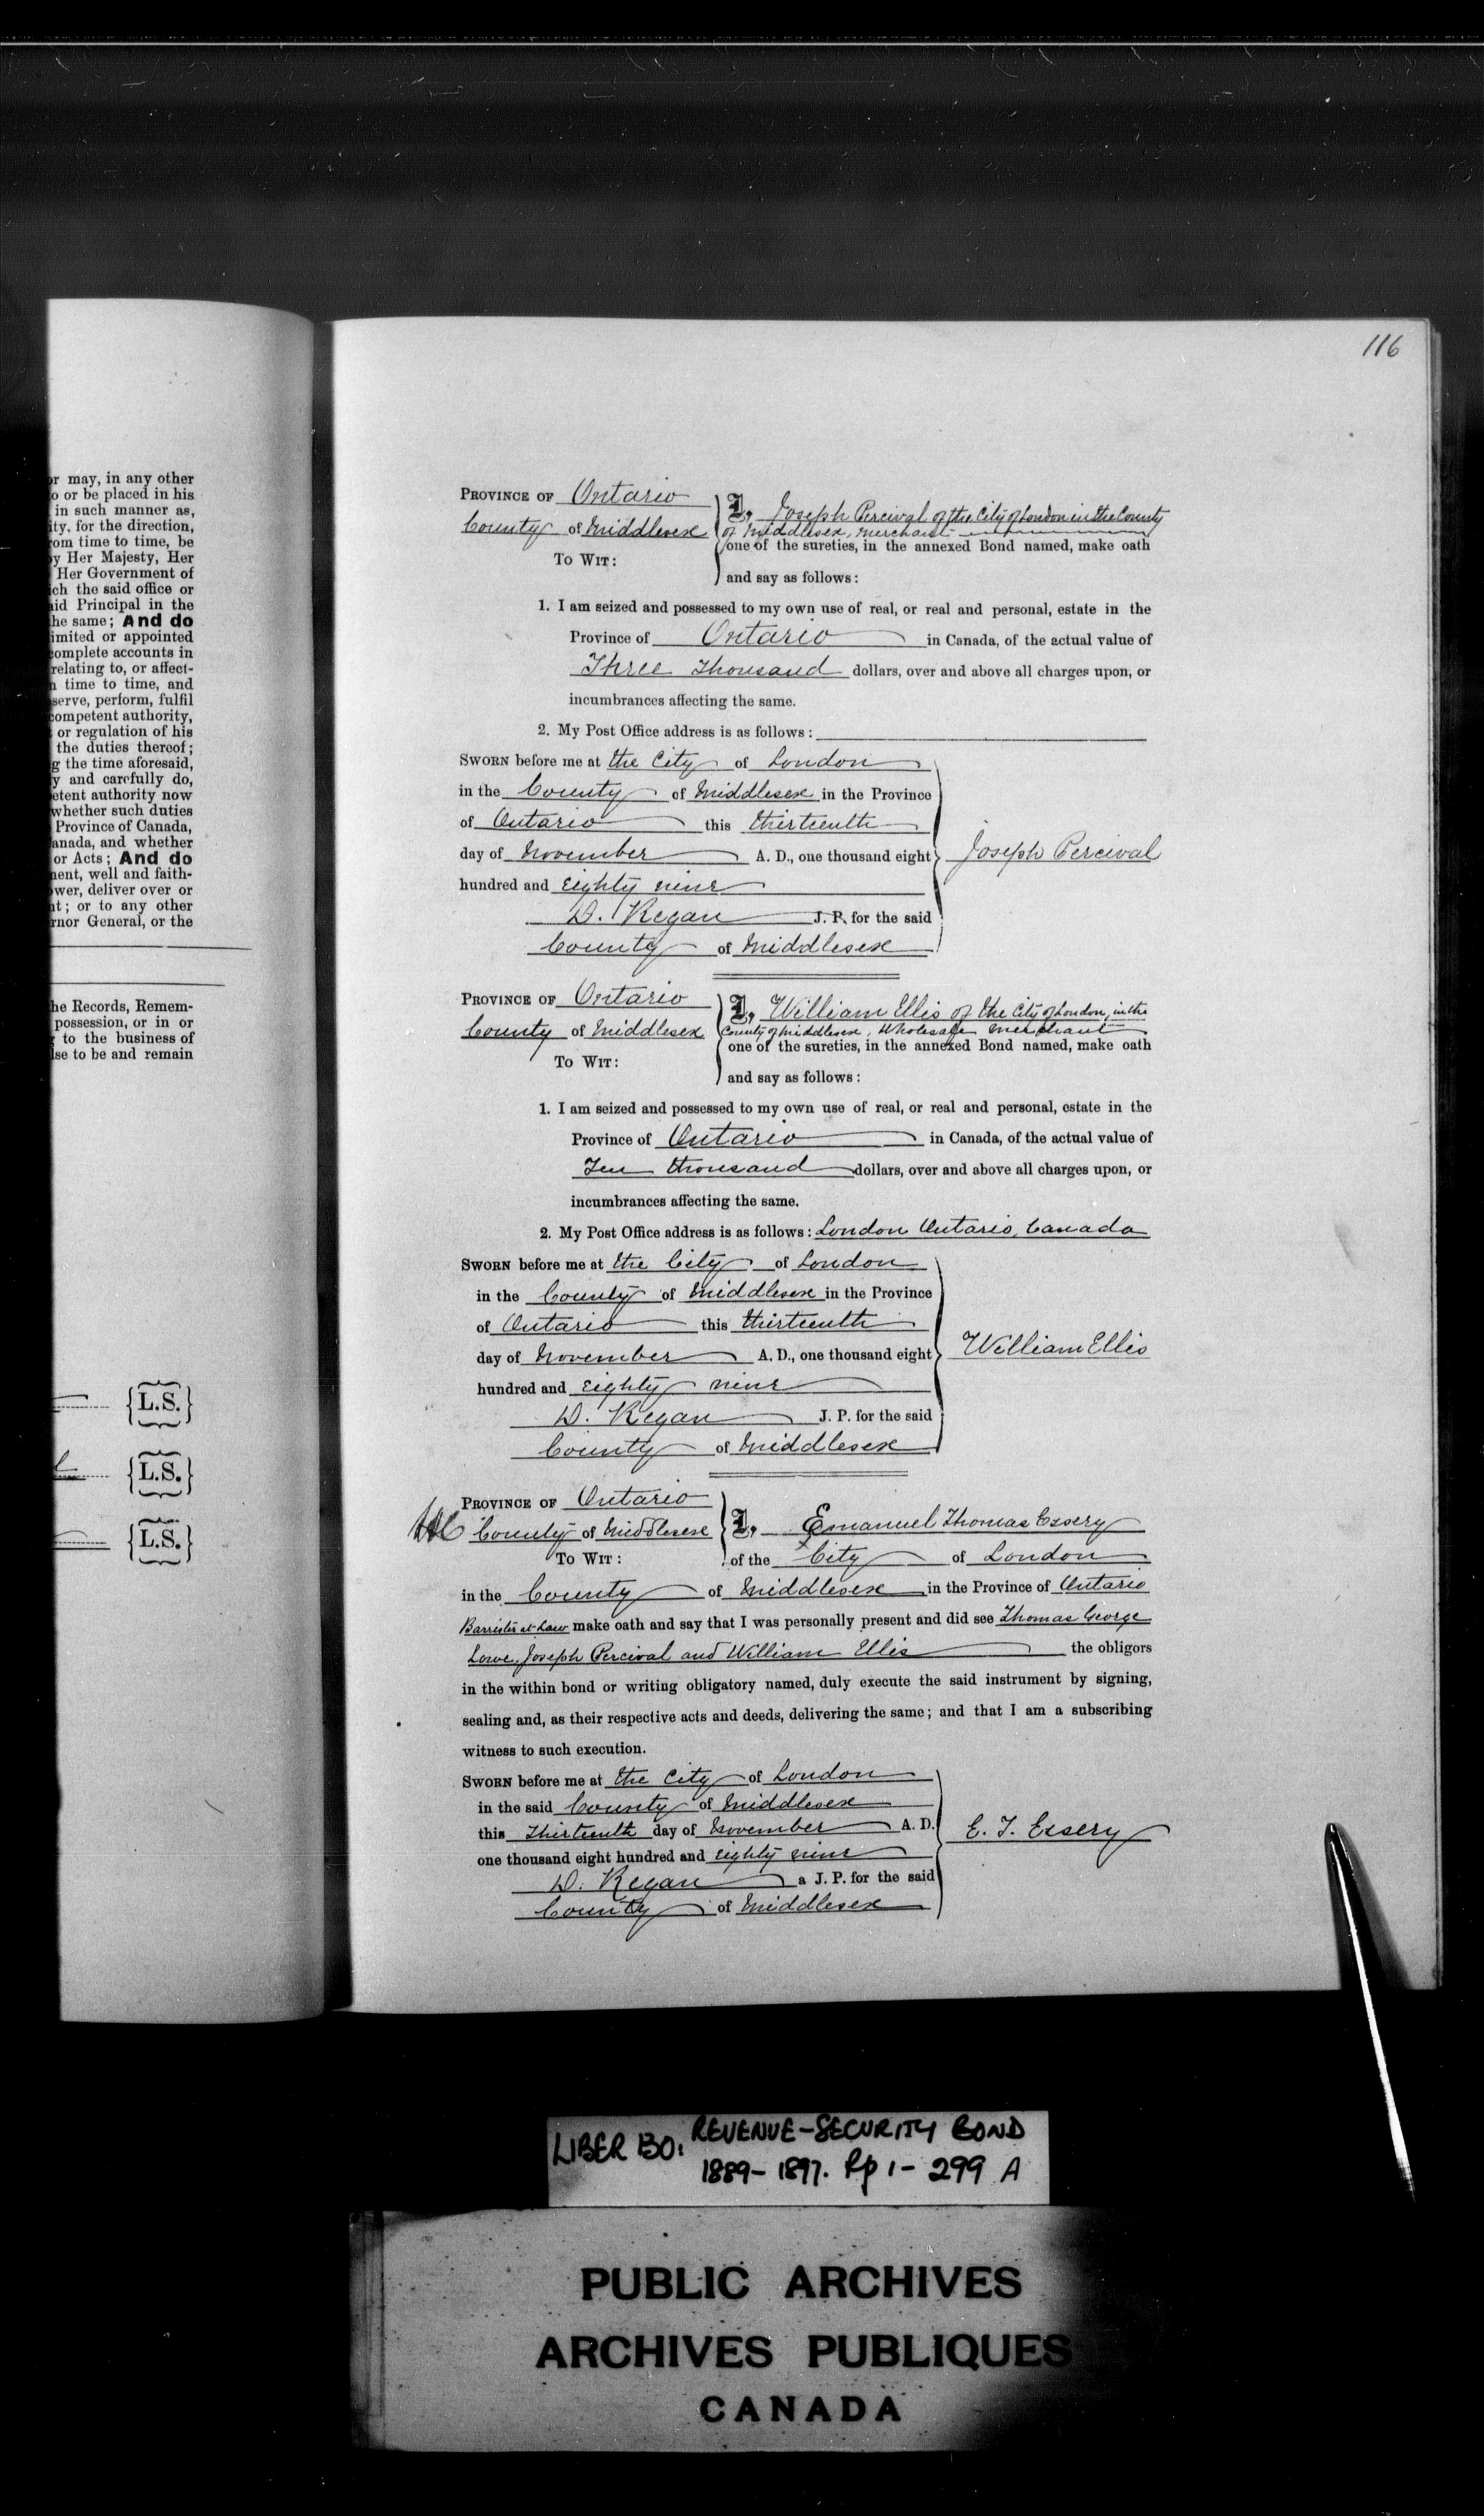 116
r may, in any other
o or be placed in his
in such manner as,
ity, for the direction,
om time to time, be
y Her Majesty, Her
Her Government of
ich the said office or
id Principal in the
he same; And do
imited or appointed
omplete accounts in
relating to, or affect-
n time to time, and
serve, perform, fulfil
competent authority,
or regulation of his
the duties thereof;
g the time aforesaid,
y and carefully do,
etent authority now
whether such duties
Province of Canada,
anada, and whether
or Acts; And do
nent, well and faith-
wer, deliver over or
nt; or to any other
rnor General, or the
he Records, Remem-
possession, or in or
to the business of
lse to be and remain
{L.S.}
{L.S.}
{L.S.}
PROVINCE OF Ontario
County of Middlesex
TO WIT:
I, Joseph Percival of the City of London in the County
of Middlesex, Merchant
one of the sureties, in the annexed Bond named, make oath
and say as follows:
1. I am seized and possessed to my own use of real, or real and personal, estate in the
Province of Ontario in Canada, of the actual value of
Three thousand dollars, over and above all charges upon, or
incumbrances affecting the same.
2. My Post Office address is as follows:
SWORN before me at the City of London
in the County of Middlesex in the Province
of Ontario this thirteenth
day of November A. D., one thousand eight
hundred and eighty nine
D. Regan J. P. for the said
County of Middlesex
Joseph Percival
PROVINCE OF Ontario
County of Middlesex
TO WIT:
I, William Ellis of the City of London, in the
County of Middlesex, Wholesale Merchant
one of the sureties, in the annexed Bond named, make oath
and say as follows:
1. I am seized and possessed to my own use of real, or real and personal, estate in the
Province of Ontario in Canada, of the actual value of
Ten thousand dollars, over and above all charges upon, or
incumbrances affecting the same.
2. My Post Office address is as follows: London Ontario, Canada
SWORN before me at the City of London
in the County of Middlesex in the Province
of Ontario this thirteenth
day of November A. D., one thousand eight
hundred and eighty nine
D. Regan J. P. for the said
County of Middlesex
William Ellis
PROVINCE OF Ontario
County of Middlesex
TO WIT:
I, Emanuel Thomas Essery
of the City of London
in the County of Middlesex in the Province of Ontario
Barrister at Law make oath and say that I was personally present and did see Thomas George
Lowe, Joseph Percival and William Ellis the obligors
in the within bond or writing obligatory named, duly execute the said instrument by signing,
sealing and, as their respective acts and deeds, delivering the same; and that I am a subscribing
witness to such execution.
SWORN before me at the City of London
in the said County of Middlesex
this Thirteenth day of November A. D.
one thousand eight hundred and eighty nine
D. Regan a J. P. for the said
County of Middlesex
E. T. Essery
LIBER 130: REVENUE-SECURITY BOND
1889-1897. Pp 1-299 A
PUBLIC ARCHIVES
ARCHIVES PUBLIQUES
CANADA